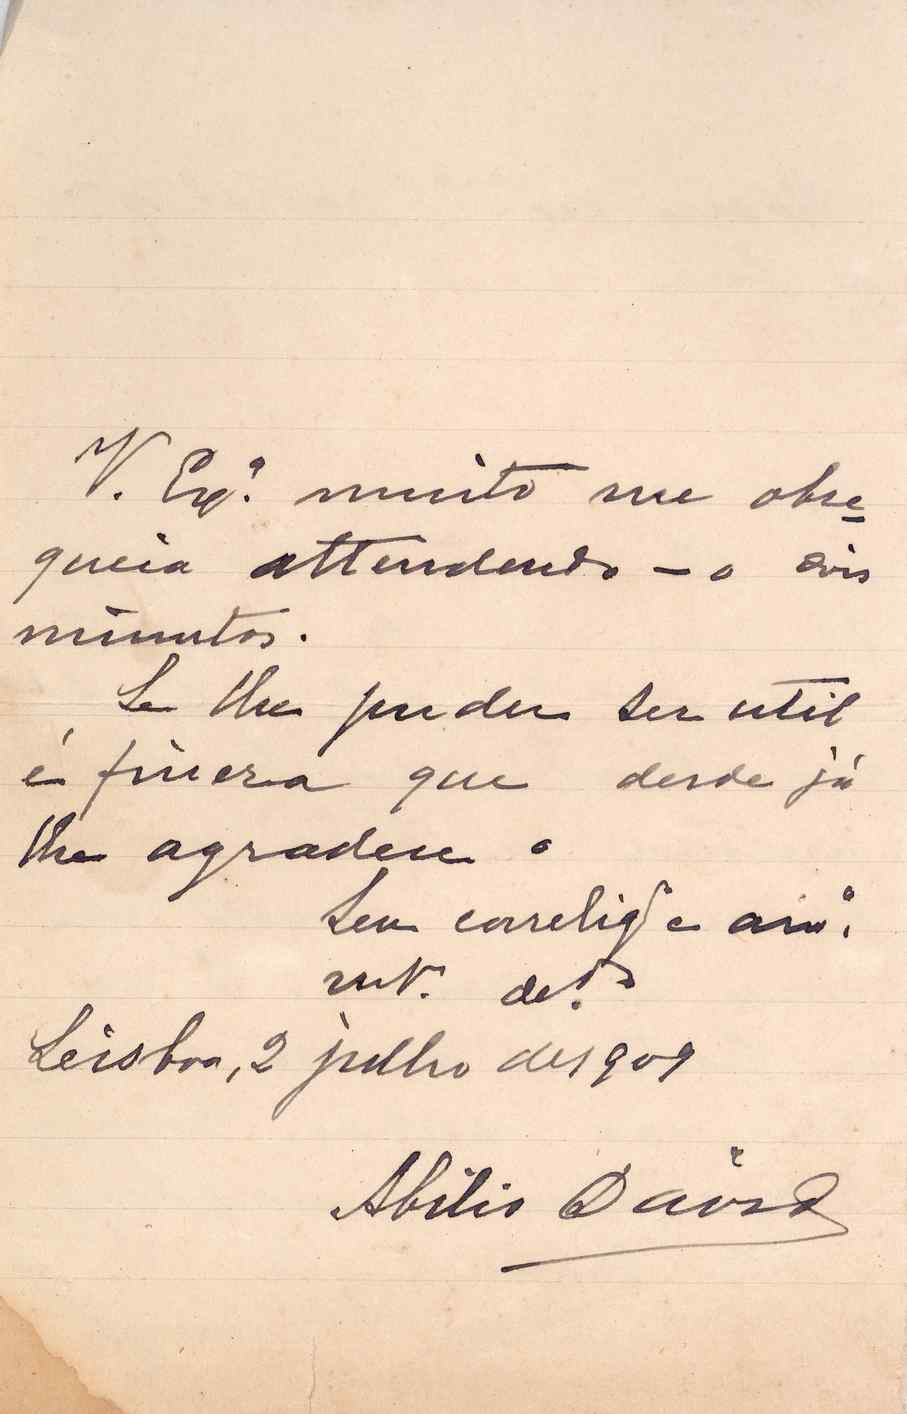 V. Exª. muito me obse-
queia attendendo-o dois
minutos.
Se lhe puder ser util
é fineza que desde já
lhe agradece o
Seu correligº e amº.
mtº. dedº
Lisboa, 2 julho de 1909
Abilio David